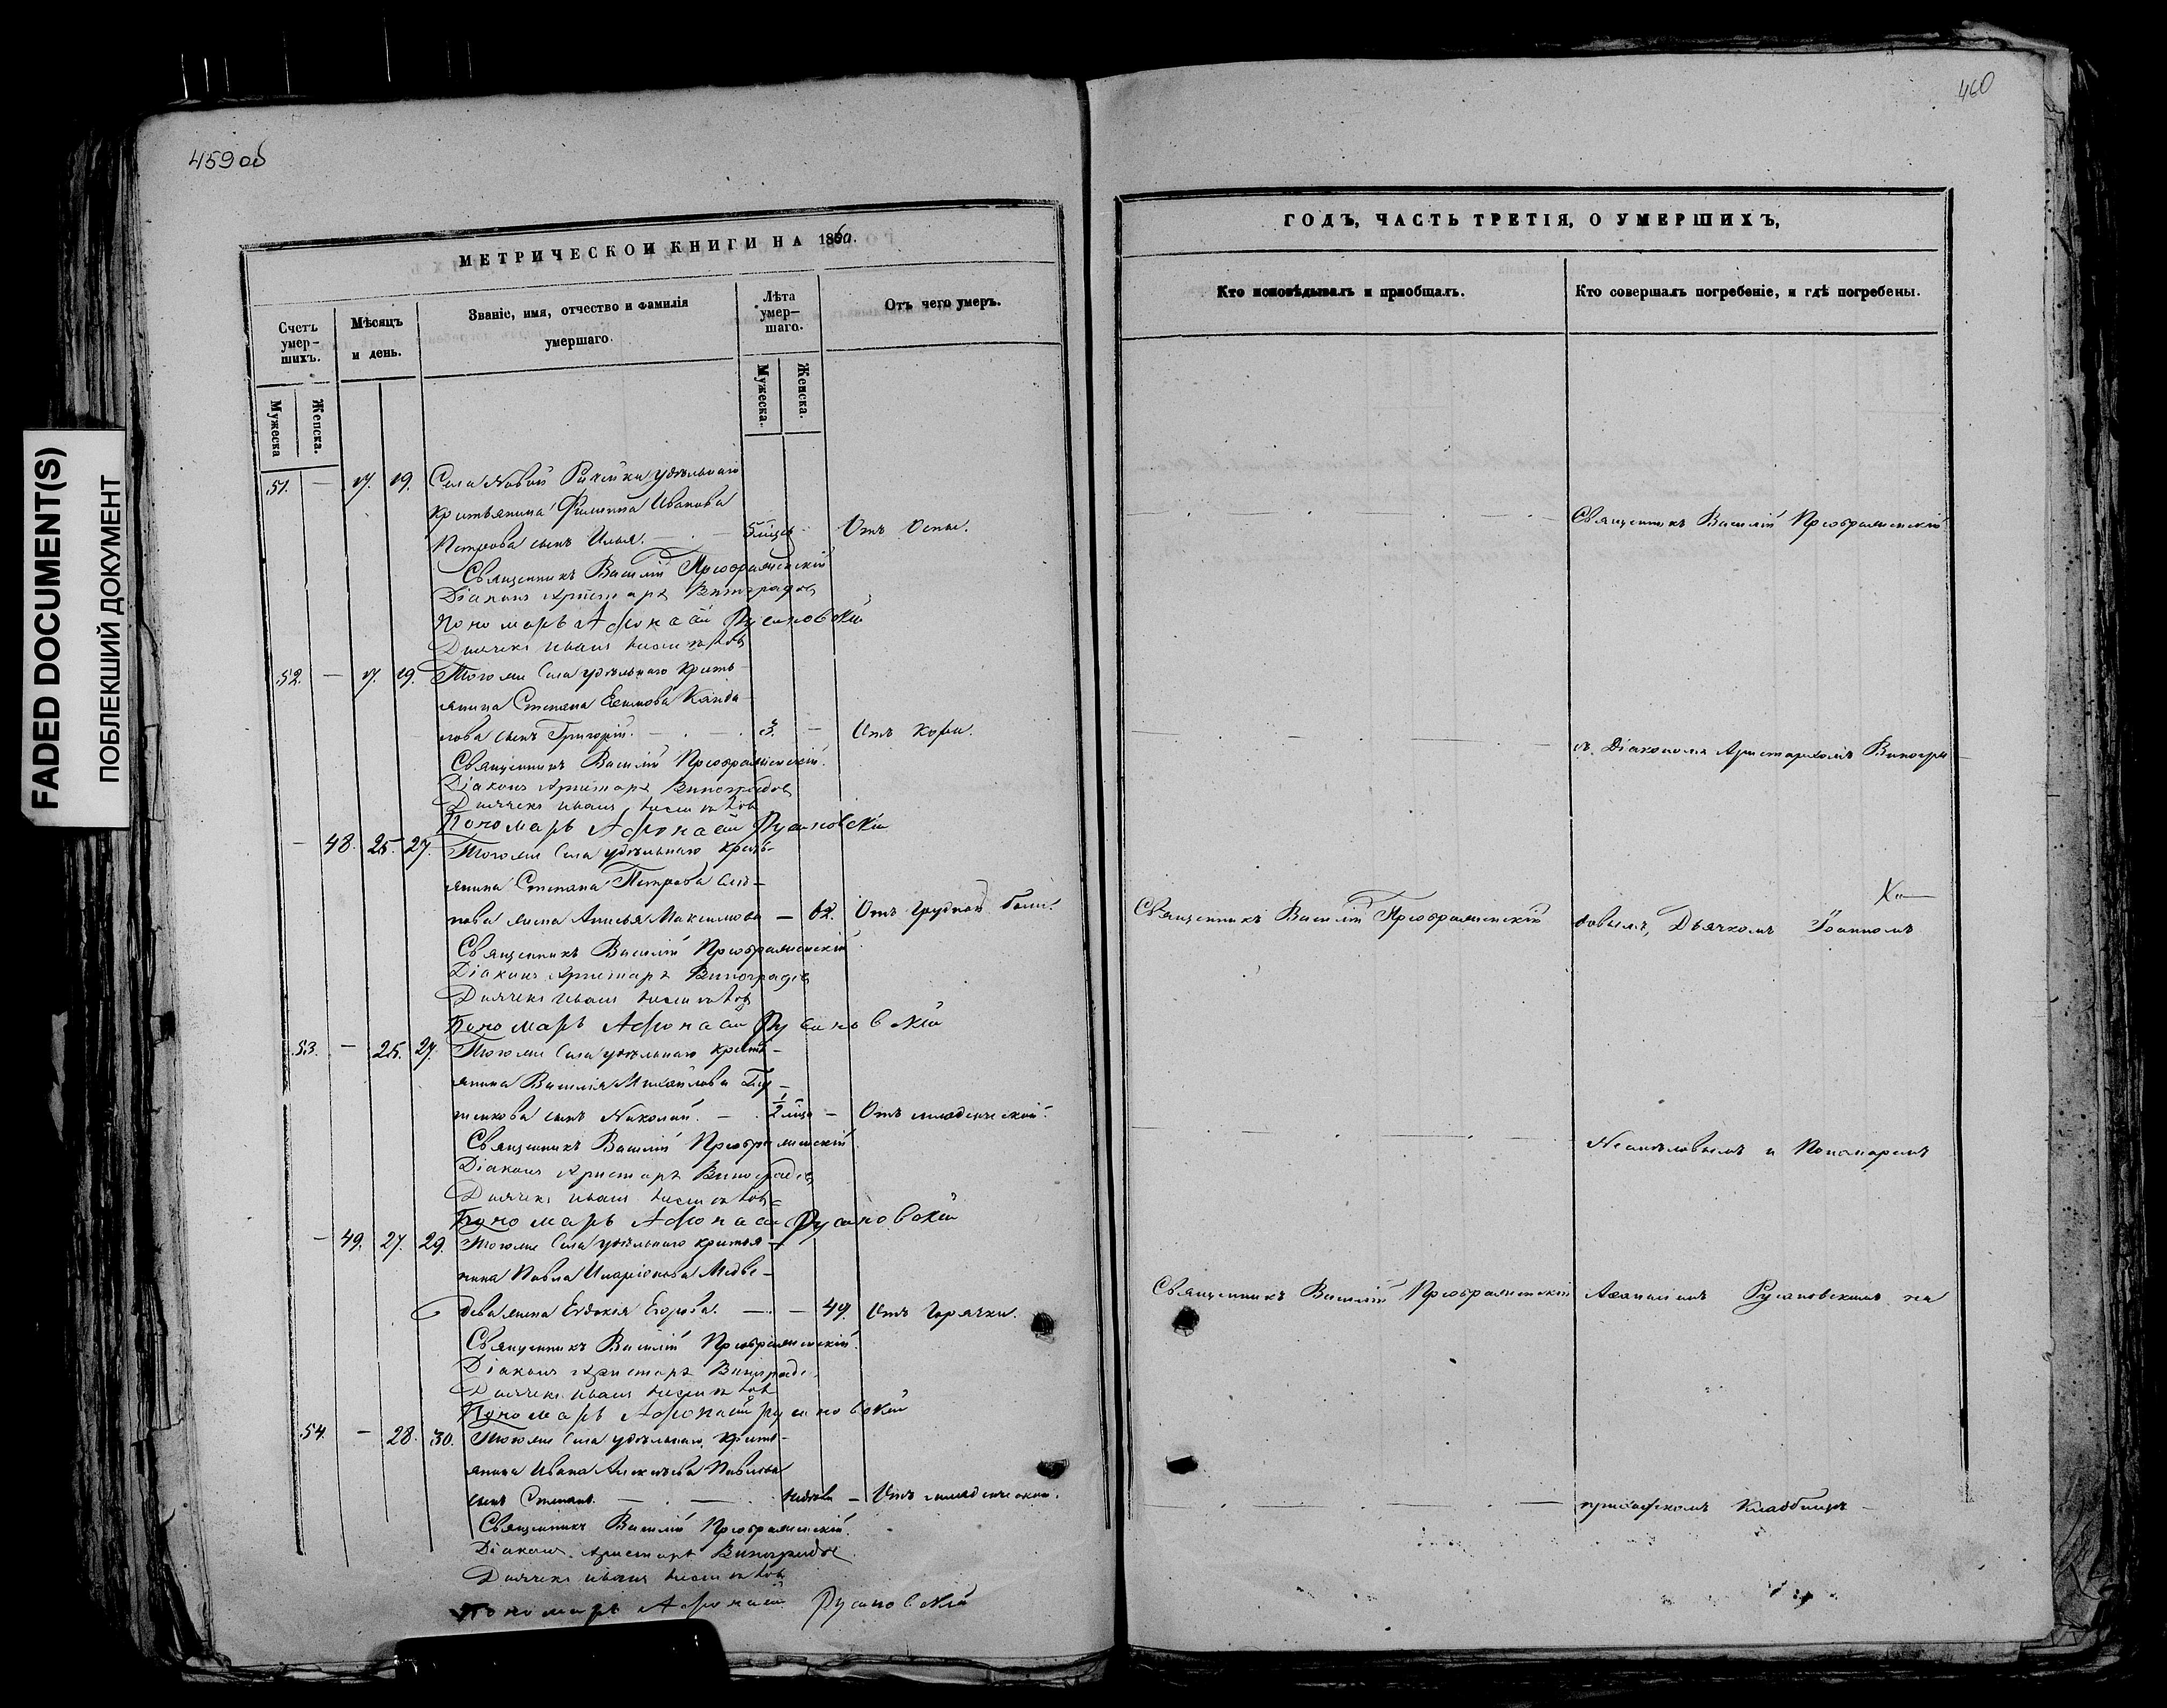 459 об
МЕТРИЧЕСКОЙ КНИГИ НА 1860.
Счетъ умер-шихъ.
Мѣсяцъ и день.
Званіе, имя, отчество и фамилія умершаго.
Лѣта умер-шаго.
Отъ чего умеръ.
Мужеска
Женска.
Мужеска.
Женска.
51. — 17. 19. Села Новой Рачейки удѣльнаго
крестьянина Филиппа Иванова
Петрова сынъ Илья. — 5 мѣсц. — Отъ Оспы.
Священникъ Василій Преображенскій
Діаконъ Аристархъ Виноградов
Пономарь Афонасій Русановскій
Дьячекъ Иванъ
52. — 17. 19. Того же Села удѣльнаго кресть-
янина Степана Ефимова
сынъ Григорій. — 3. — Отъ Кори.
Священникъ Василій Преображенскій.
Діаконъ Аристархъ Виноградов
Дьячекъ Иванъ
Пономарь Афонасій Русановскій
— 48. 25. 27. Того же Села удѣльнаго кресть-
янина Степана Петрова
жена Анисья Максимова — 62. Отъ Грудной боли.
Священникъ Василій Преображенскій.
Діаконъ Аристархъ Виноградов
Дьячекъ Иванъ
Пономарь Афонасій Русановскій
53. — 25. 27. Того же Села удѣльнаго кресть-
янина Василія Михайлова
сынъ Николай. — 1/2 мѣсц — Отъ младенческой.
Священникъ Василій Преображенскій
Діаконъ Аристархъ Виноградов
Дьячекъ Иванъ
Пономарь Афонасій Русановскій
— 49. 27. 29. Того же Села удѣльнаго крестья-
нина Павла Иларіонова Медве-
дева жена Евдокія Егорова. — — 49. Отъ Горячки.
Священникъ Василій Преображенскій.
Діаконъ Аристархъ Виноградов
Дьячекъ Иванъ
Пономарь Афонасій Русановскій
54. — 28. 30. Того же Села удѣльнаго кресть-
янина Ивана Алексѣева Павлова
сынъ Степанъ. — — Отъ младенческой.
Священникъ Василій Преображенскій.
Діаконъ Аристархъ Виноградов
Дьячекъ Иванъ
Пономарь Афонасій Русановскій
460
ГОДЪ, ЧАСТЬ ТРЕТІЯ, О УМЕРШИХЪ,
Кто исповѣдывалъ и пріобщалъ.
Кто совершалъ погребеніе, и гдѣ погребены.
Священникъ Василій Преображенскій
съ Діакономъ Аристархомъ Виногра-
Священникъ Василій Преображенскій
довымъ, Дьячкомъ Іоанномъ
и Пономаремъ
Священникъ Василій Преображенскій
Аѳанасіемъ Русановскимъ на
приходскомъ Кладбищѣ
FADED DOCUMENT(S)
ПОБЛЕКШИЙ ДОКУМЕНТ